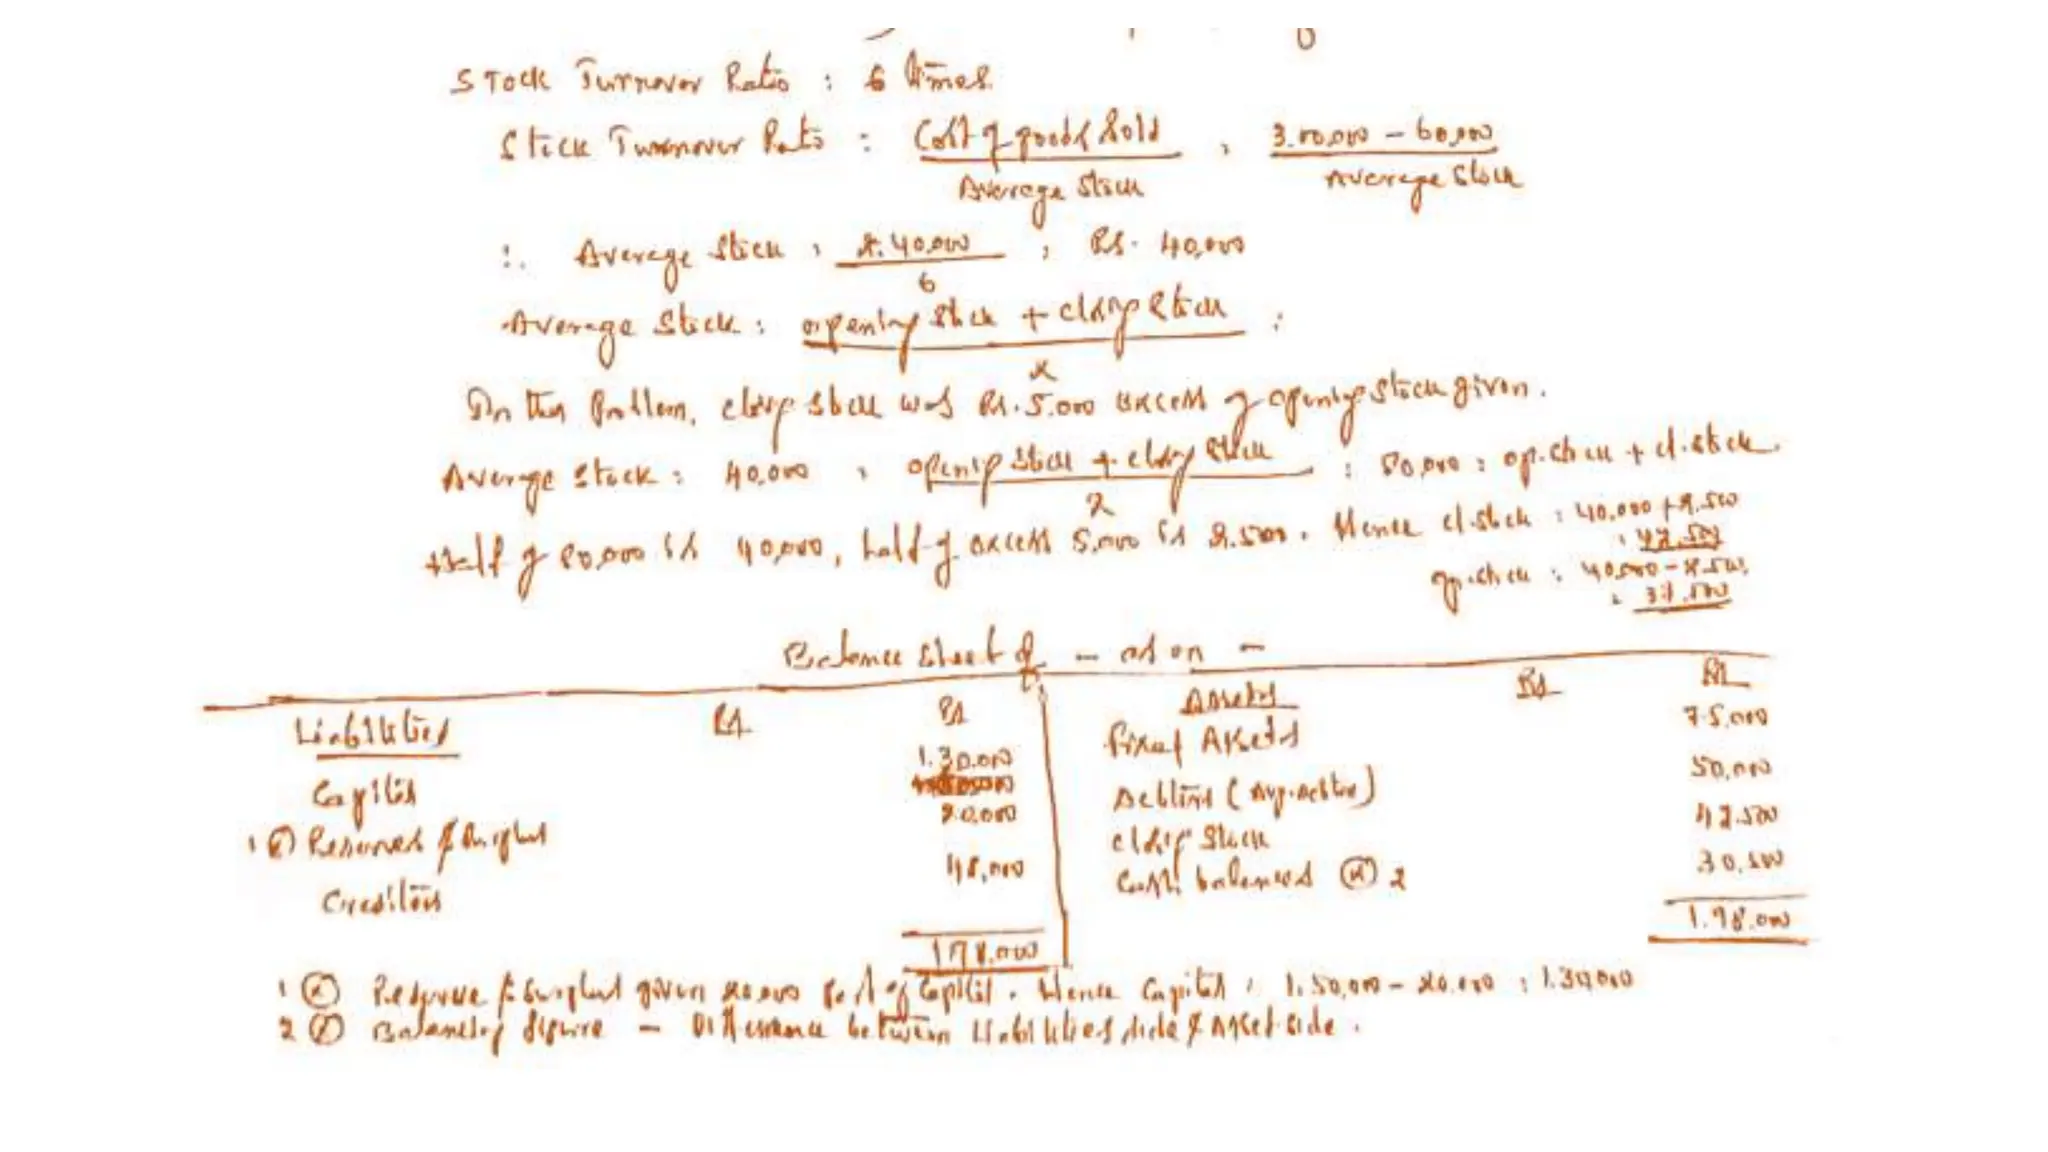 Stock Turnover Ratio : 6 times.
Stock Turnover Ratio : Cost of goods sold / Average Stock , 3.00,000 - 60,000 / Average Stock
∴ Average Stock , 2.40,000 / 6 , Rs. 40,000
Average Stock : opening Stock + closing Stock / 2 :
In this Problem, closing stock was Rs. 5,000 excess of opening stock given.
Average Stock : 40,000 , opening stock + closing stock / 2 : 80,000 : op. stock + cl. stock
Half of 80,000 is 40,000, half of excess 5,000 is 2.500. Hence cl. stock : 40,000 + 2.500
, 42.500
op. stock : 40,000 - 2.500
, 37.500
Balance Sheet of - as on -
Liabilities Rs Rs Assets Rs Rs
Capital 1.30.000 Fixed Assets 75,000
1 Reserves & Surplus 20,000 Debtors 50,000
Creditors 48,000 Closing Stock 42.500
Cash balances 2 30,500
198,000 1.98,000
1 Reserve & Surplus given 20,000 Part of Capital. Hence Capital : 1.50,000 - 20,000 : 1.30,000
2 Balancing figure - Difference between Liabilities side & Asset side.